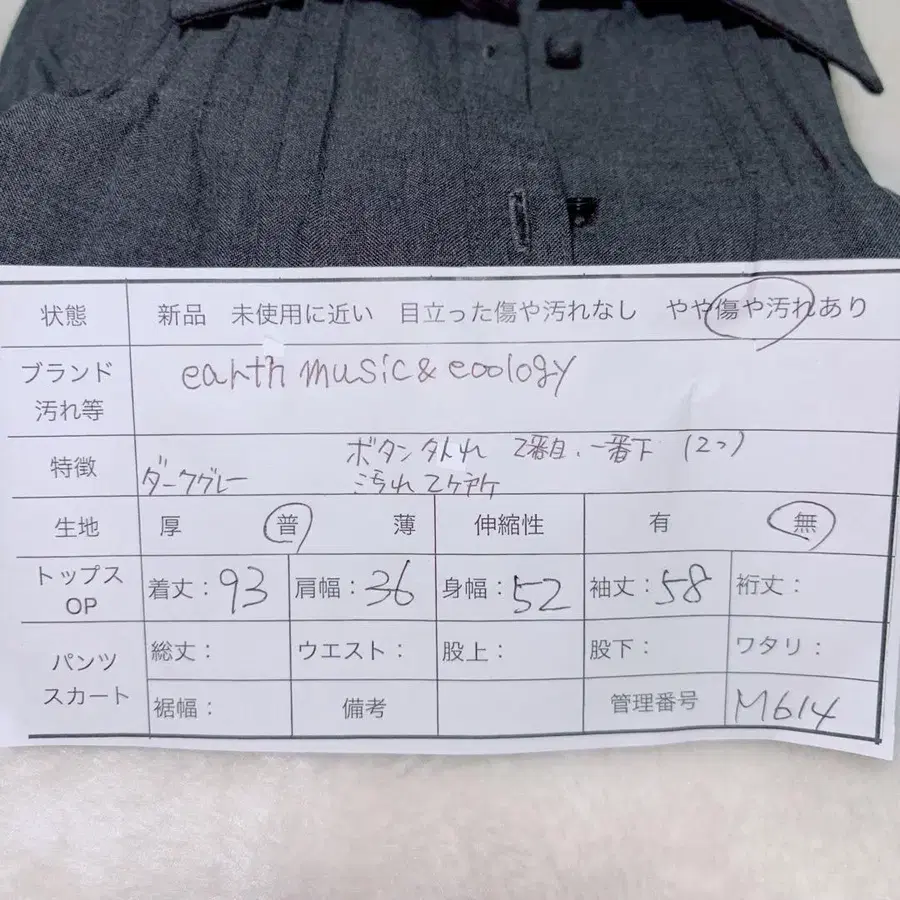 状態 新品 未使用に近い 目立った傷や汚れなし やや傷や汚れあり
ブランド
汚れ等
earth music & eoology
特徴
ダークグレー
ボタン外れ 2番目、一番下 (2つ)
汚れ2ヶ所
生地 厚 普 薄 伸縮性 有 無
トップス
OP
着丈：93 肩幅：36 身幅：52 袖丈：58 裄丈：
パンツ
スカート
総丈： ウエスト： 股上： 股下： ワタリ：
裾幅： 備考 管理番号 M614